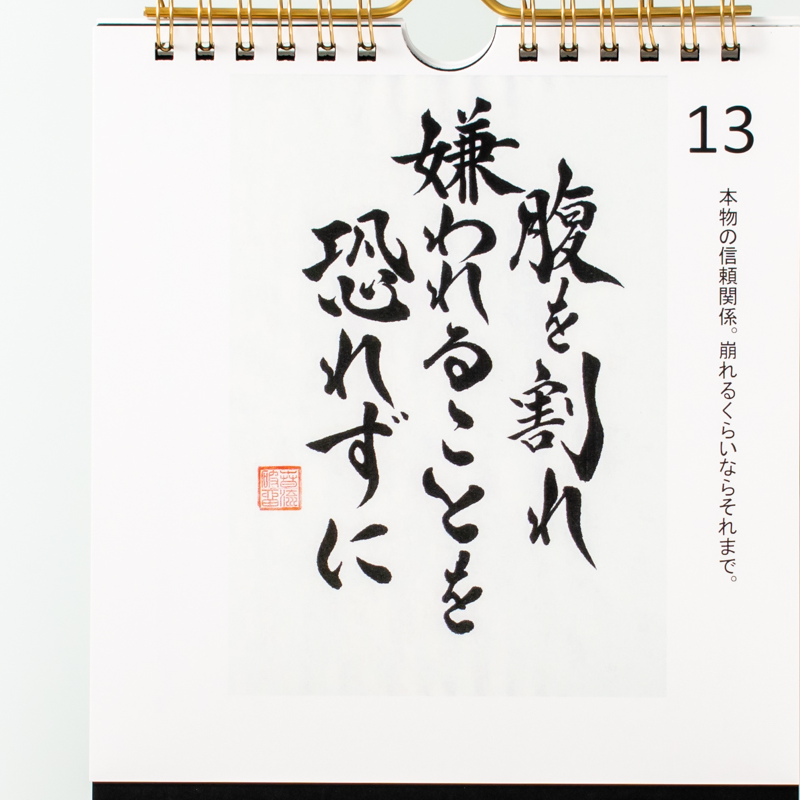 13
本物の信頼関係。崩れるくらいならそれまで。
腹を割れ
嫌われることを
恐れずに